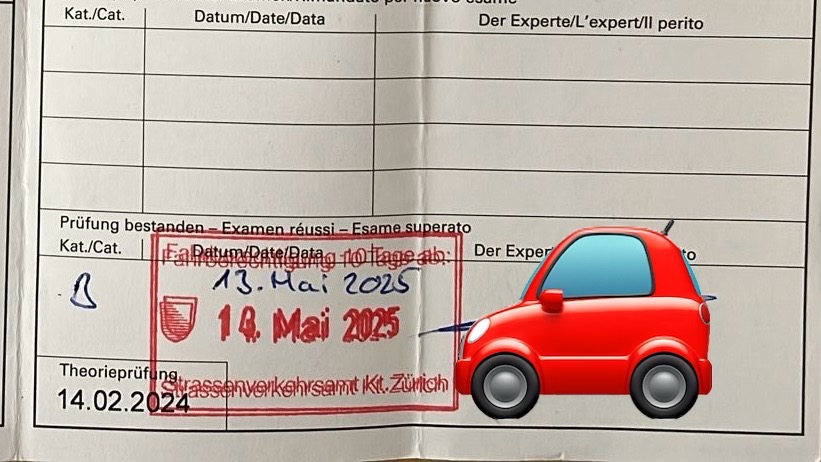 Kat./Cat. Datum/Date/Data Der Experte/L'expert/Il perito
Prüfung bestanden – Examen réussi – Esame superato
Kat./Cat. Datum/Date/Data Der Exper to
Fahrberechtigung 10 Tage ab:
B 13. Mai 2025
Mai 2025
Theorieprüfung
Strassenverkehrsamt Kt. Zürich
14.02.2024